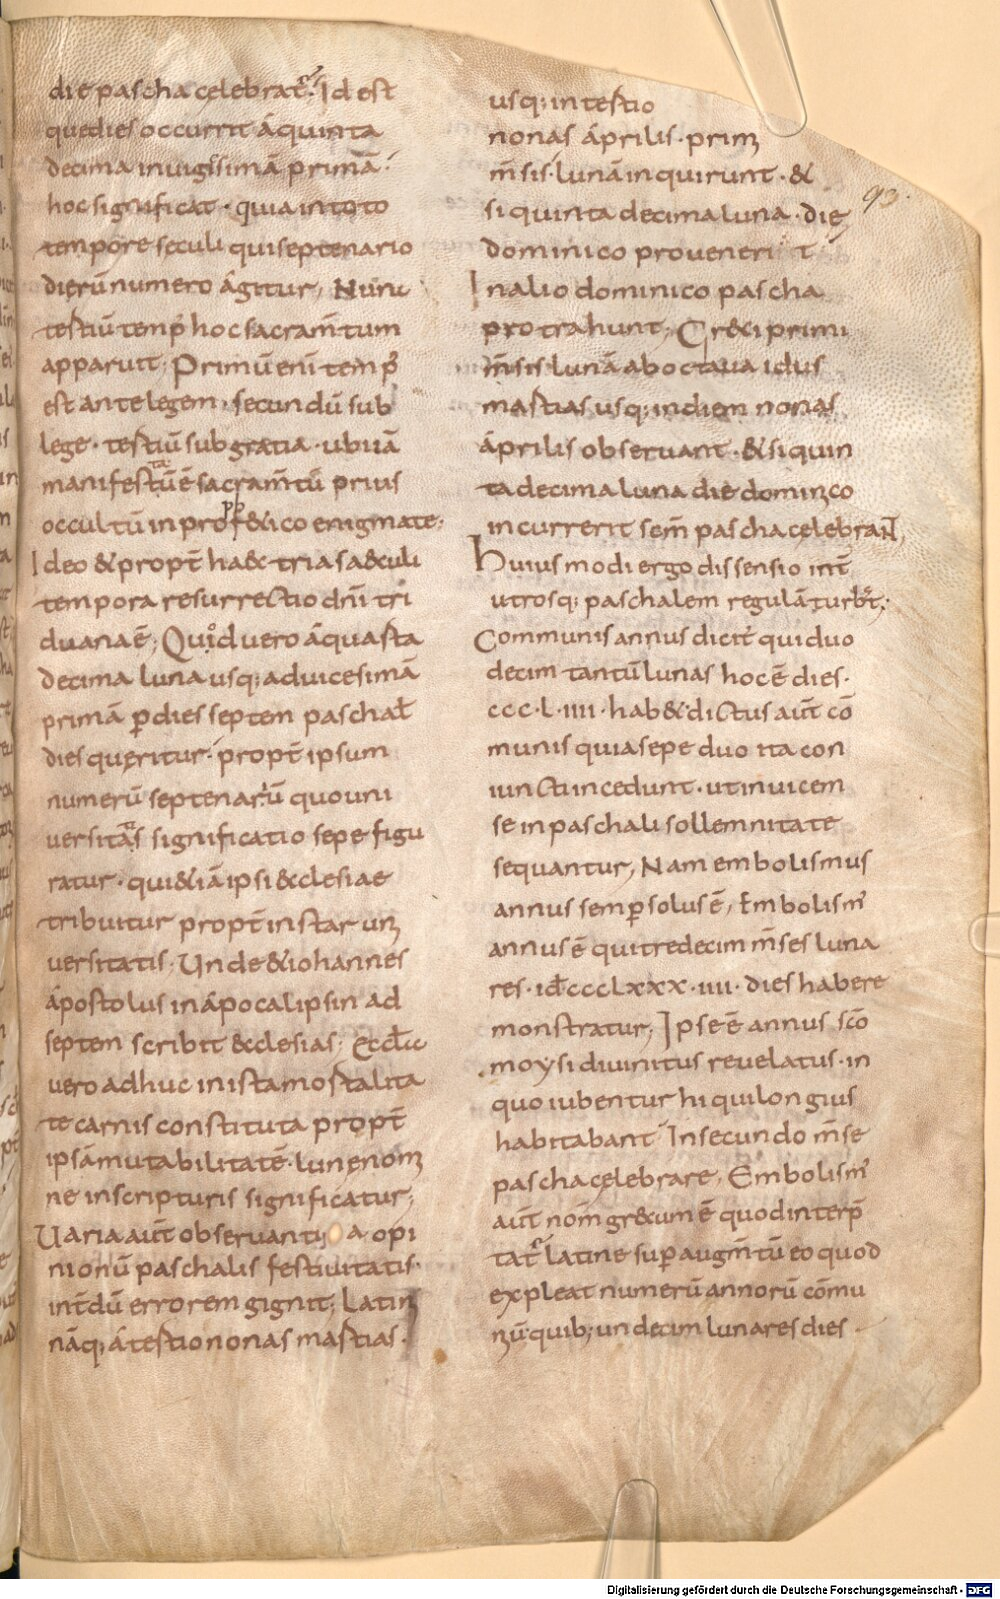 die pascha celebrat̄ᷣ. Id est
quedies occurrit áquinta
decima inuigisimā primā.
hoc significat. quia intoto
tempore seculi quiseptenario
dierū numero ágitur, Nunc
tertiū temp̄ hoc sacram̄tum
apparuit; Primū enī temp̄
est ante legem. secundū sub
lege. tertiū sub gratia. ubi iā
manifestatū ē sacram̄tū prius
occultū in prof&ico enigmate;
Ideo & propt̄ haec tria saeculi
tempora resurrectio dn̄i tri
duana ē; Quod uero áquarta
decima luna usq; aduicesimā
primā ꝑ dies septem paschal̄
dies queritur. propt̄ ipsum
numerū septenariū quo uni
uersitas significatio sepe figu
ratur. qui &iā ipsi ecclesiae
tribuitur propt̄ instar uni
uersitatis; Unde & iohannes
ápostolus in ápocalipsin ad
septem scribit ecclesias; Eccl̄a
uero adhuc in ista mortalita
te carnis constituta propt̄
ipsā mutabilitatē. lunę nomi
ne in scripturis significatur;
Uaria aut̄ obseruantia opi
nionū paschalis festiuitatis.
int̄dū errorem gignit; Latini
nāq; á tertio nonas martias.
usq; in tertio
nonas április. primi
m̄sis. lunā inquirunt. &
si quinta decima luna. die
dominico prouenerit
In alio dominico pascha
protrahunt; Greci primi
m̄sis lunā ab octaua idus
martias usq; in diem nonas
április obseruant. & si quin
ta decima luna die dominico
incurrerit sem̄ pascha celebrant,
Huiusmodi ergo dissensio int̄
utrosq; paschalem regulā turbat̄;
Communis annus dicit̄ qui duo
decim tantū lunas hoc ē dies.
ccc.l.iiii. hab& dictus aut̄ cō
munis quia sepe duo ita con
iuncti incedunt. ut inuicem
se in paschali sollemnitate
sequantur, Nam embolismus
annus semꝑ solus ē, Embolism᾽
annus ē qui tredecim m̄ses luna
res. id̄ cccclxxx.iiii. dies habere
monstratur; Ipse ē annus sc̄o
moysi diuinitus reuelatus. in
quo iubentur hi qui longius
habitabant In secundo m̄se
pascha celebrare, Embolism᾽
aut̄ nom̄ grecum ē quod interp̄
tat̄ᷣ latine sup̄ augm̄tū eo quod
expleat numerū annorū cōmu
niū. quib; undecim lunares dies
93.
Digitalisierung gefördert durch die Deutsche Forschungsgemeinschaft - DFG